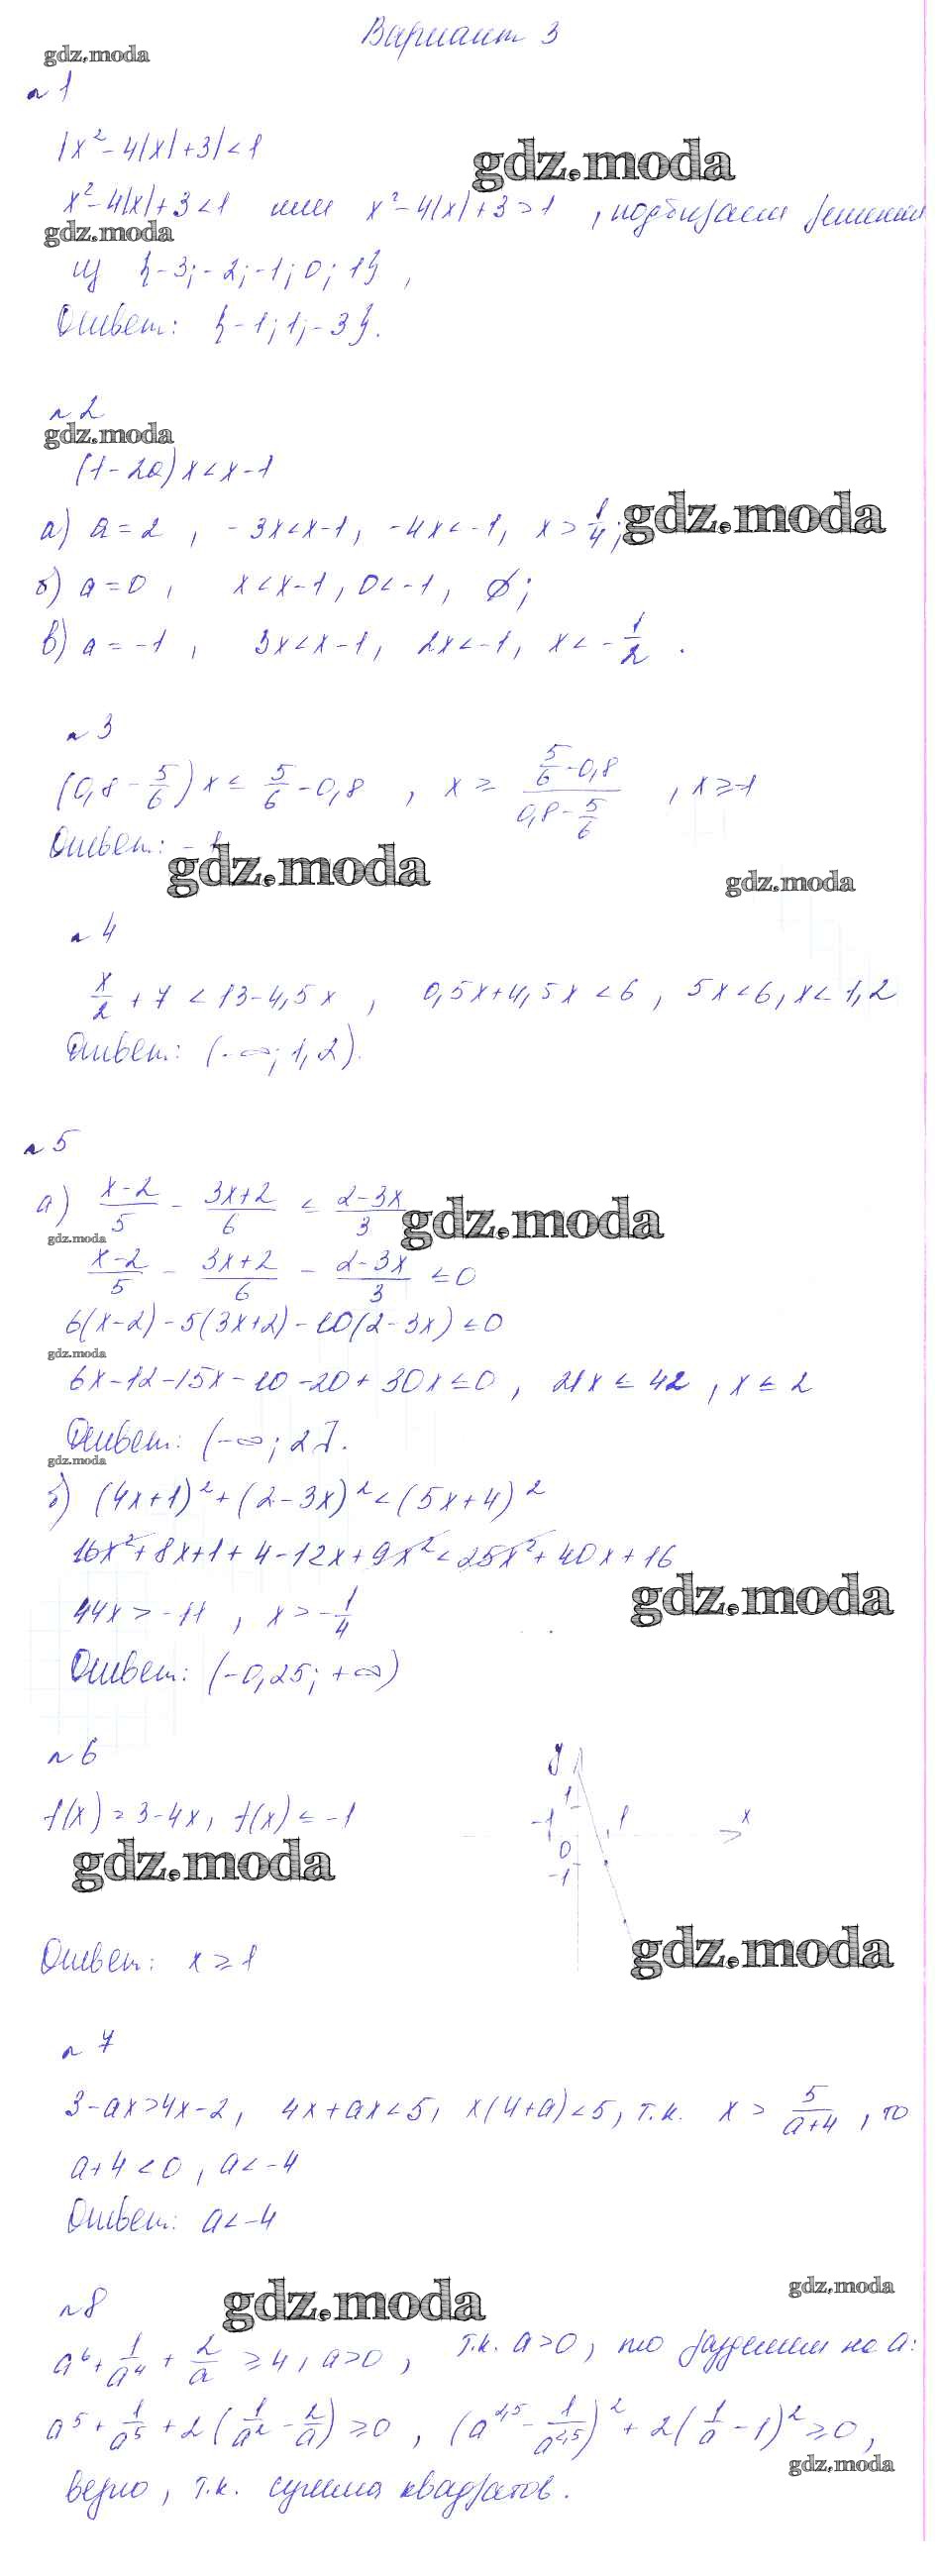 Вариант 3
gdz.moda
№1
|x² - 4|x| + 3| < 1
gdz.moda
x² - 4|x| + 3 < 1 или x² - 4|x| + 3 > 1, подбираем решения
gdz.moda
из {-3; -2; -1; 0; 1},
Ответ: {-1; 1; -3}.
№2
gdz.moda
(1 - 2a)x < x - 1
а) a = 2, -3x < x - 1, -4x < -1, x > 1/4; gdz.moda
б) a = 0, x < x - 1, 0 < -1, ∅;
в) a = -1, 3x < x - 1, 2x < -1, x < -1/2.
№3
(0,8 - 5/6)x ≤ 5/6 - 0,8, x ≥ (5/6 - 0,8)/(0,8 - 5/6), x ≥ -1
Ответ: -1
gdz.moda
gdz.moda
№4
x/2 + 7 < 13 - 4,5x, 0,5x + 4,5x < 6, 5x < 6, x < 1,2
Ответ: (-∞; 1,2).
№5
а) (x-2)/5 - (3x+2)/6 ≤ (2-3x)/3 gdz.moda
gdz.moda
(x-2)/5 - (3x+2)/6 - (2-3x)/3 ≤ 0
6(x-2) - 5(3x+2) - 10(2-3x) ≤ 0
gdz.moda
6x - 12 - 15x - 10 - 20 + 30x ≤ 0, 21x ≤ 42, x ≤ 2
Ответ: (-∞; 2].
gdz.moda
б) (4x+1)² + (2-3x)² < (5x+4)²
16x² + 8x + 1 + 4 - 12x + 9x² < 25x² + 40x + 16
gdz.moda
44x > -11, x > -1/4
Ответ: (-0,25; +∞)
№6
y
1
-1 1 x
0
-1
f(x) = 3 - 4x, f(x) ≤ -1
gdz.moda
gdz.moda
Ответ: x ≥ 1
№7
3 - ax > 4x - 2, 4x + ax < 5, x(4+a) < 5, т.к. x > 5/(a+4), то
a + 4 < 0, a < -4
Ответ: a < -4
gdz.moda
gdz.moda
№8
a⁶ + 1/a⁴ + 2/a ≥ 4, a > 0, т.к. a > 0, то разделим на a:
a⁵ + 1/a⁵ + 2(1/a² - 2/a) ≥ 0, (a^2,5 - 1/a^2,5)² + 2(1/a - 1)² ≥ 0,
gdz.moda
верно, т.к. сумма квадратов.